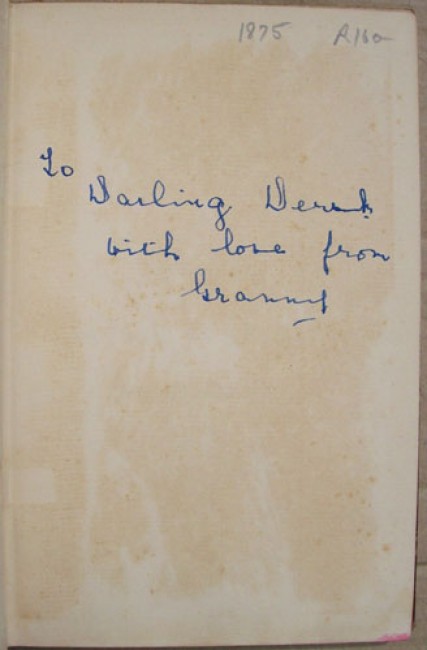 1875
To
Darling Derek
with love from
Granny